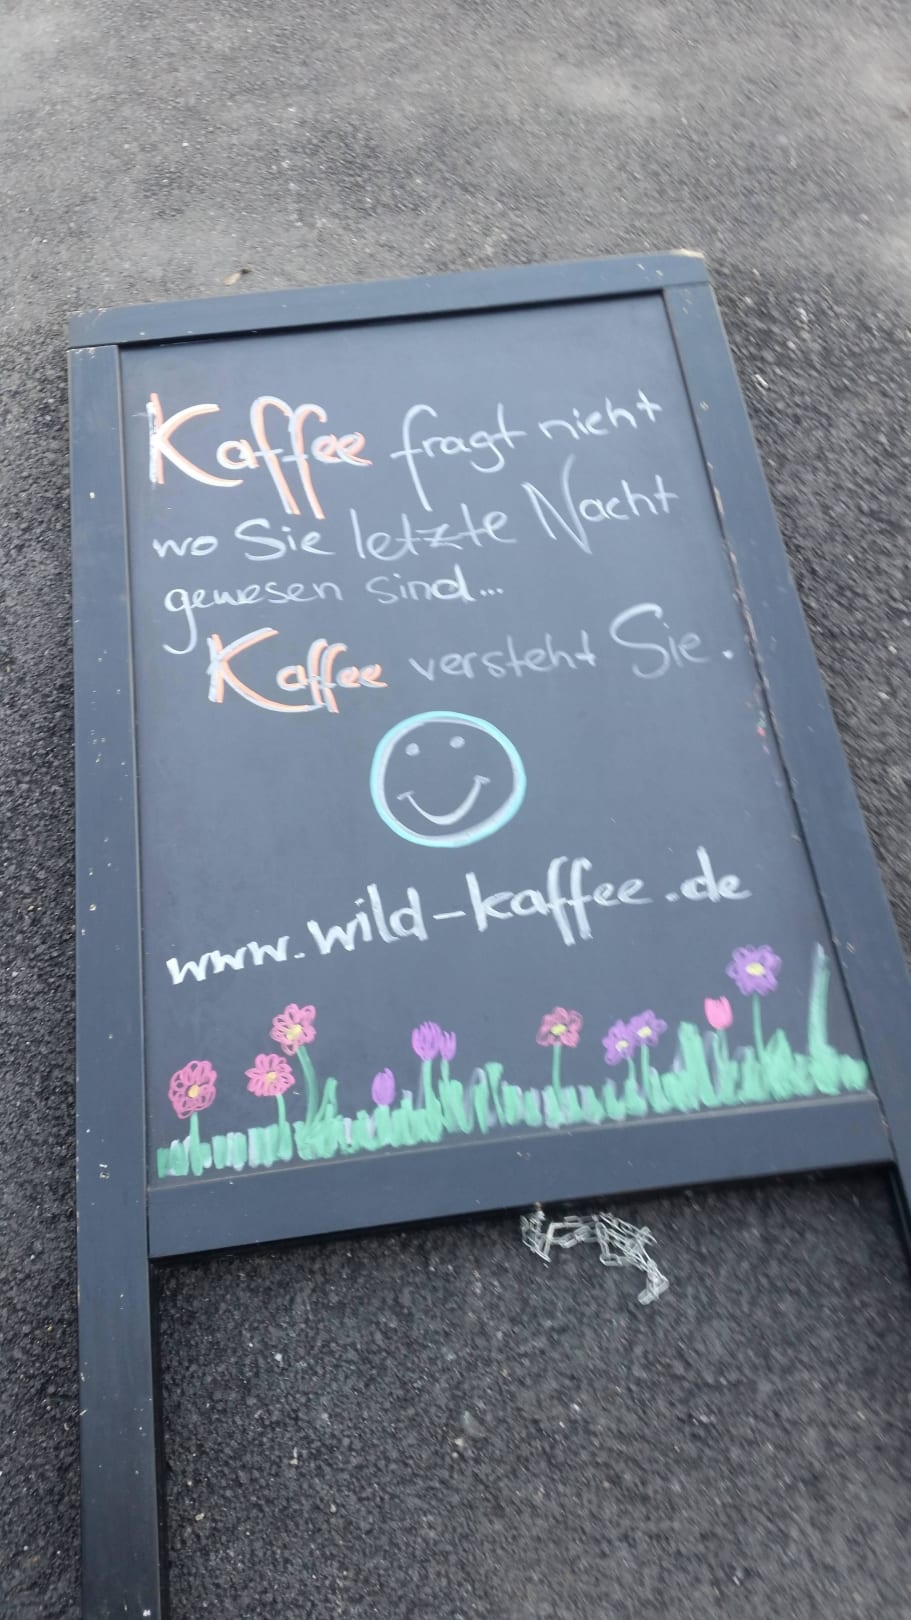 Kaffee fragt nicht
wo Sie letzte Nacht
gewesen sind...
Kaffee versteht Sie.
www.wild-kaffee.de